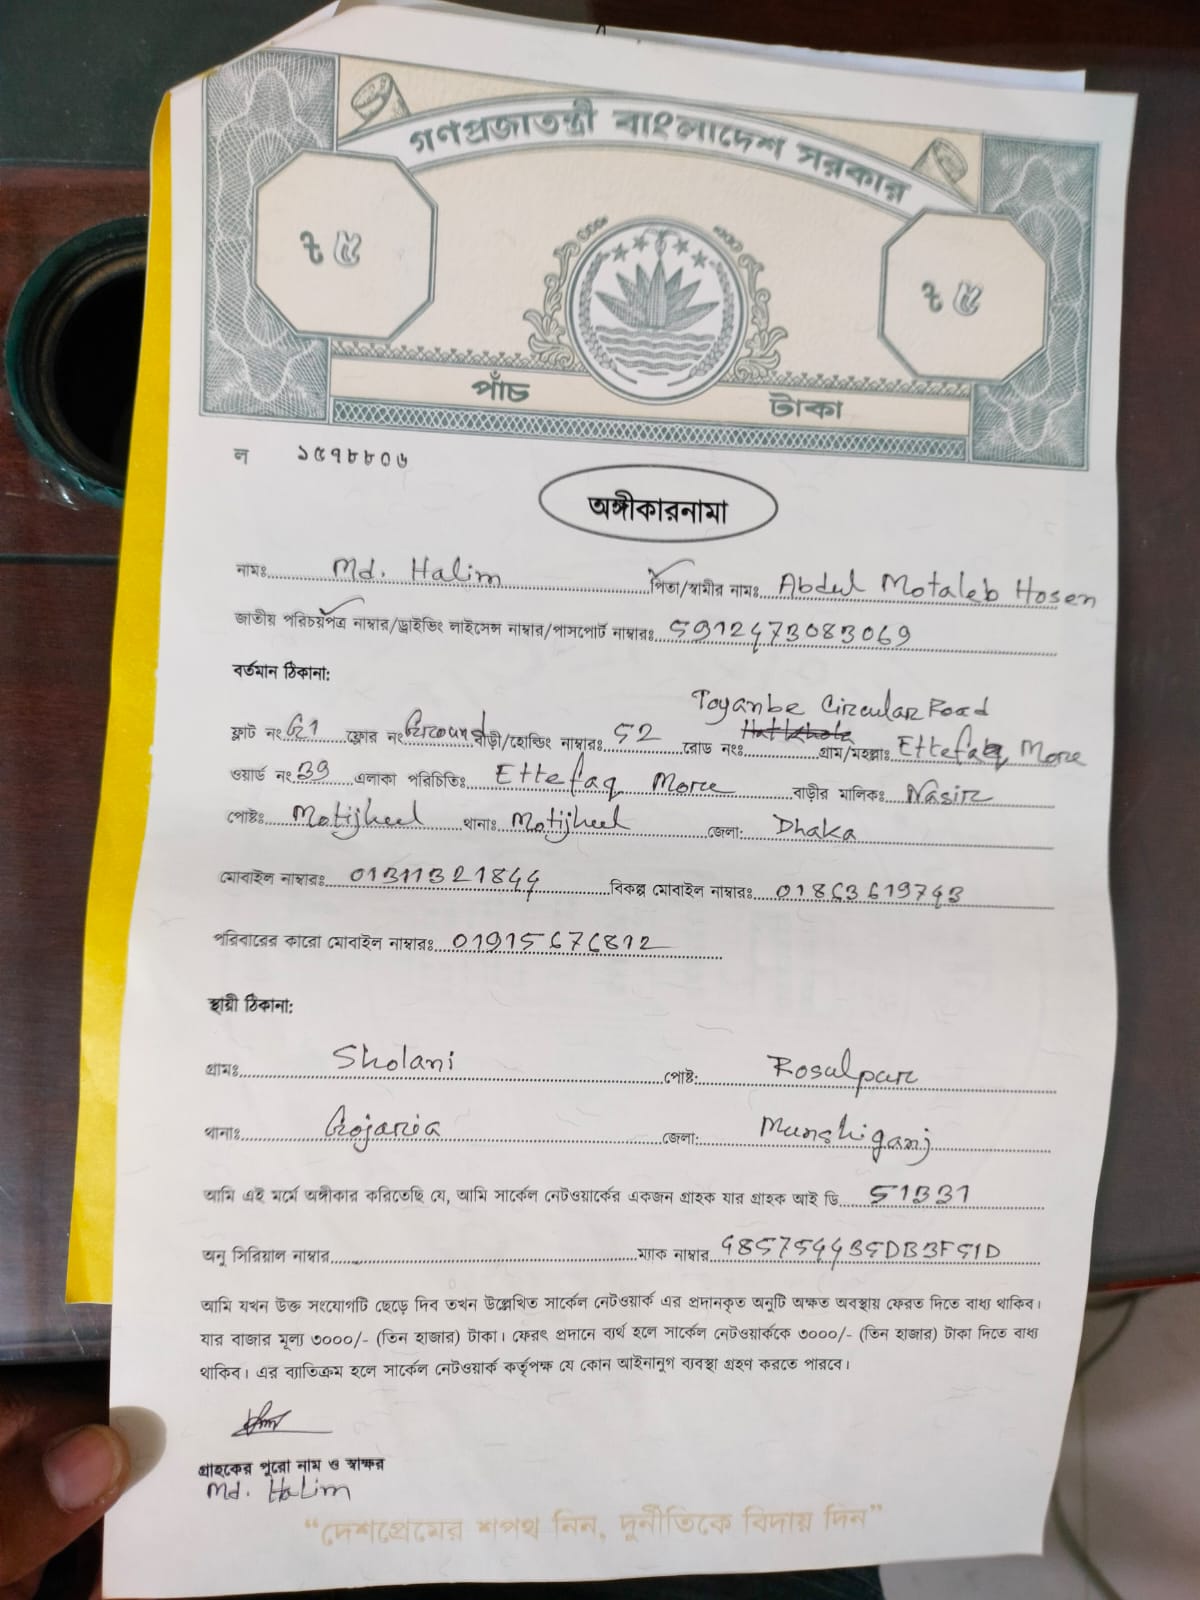 গণপ্রজাতন্ত্রী বাংলাদেশ সরকার
৳ ৫
৳ ৫
পাঁচ টাকা
ল ১৫৭৮৮০৬
অঙ্গীকারনামা
নামঃ Md. Halim পিতা/স্বামীর নামঃ Abdul Motaleb Hosen
জাতীয় পরিচয়পত্র নাম্বার/ড্রাইভিং লাইসেন্স নাম্বার/পাসপোর্ট নাম্বারঃ 5912473083069
বর্তমান ঠিকানা:
Toyanbe Circular Road
ফ্লাট নং G1 ফ্লোর নং Ground বাড়ী/হোল্ডিং নাম্বারঃ 52 রোড নংঃ গ্রাম/মহল্লাঃ Ettefaq More
ওয়ার্ড নং 39 এলাকা পরিচিতিঃ Ettefaq More বাড়ীর মালিকঃ Nasir
পোষ্টঃ Motijheel থানাঃ Motijheel জেলা: Dhaka
মোবাইল নাম্বারঃ 01311321844 বিকল্প মোবাইল নাম্বারঃ 01863619743
পরিবারের কারো মোবাইল নাম্বারঃ 01915676812
স্থায়ী ঠিকানা:
গ্রামঃ Sholani পোষ্ট: Rosulpur
থানাঃ Gojaria জেলা: Munshiganj
আমি এই মর্মে অঙ্গীকার করিতেছি যে, আমি সার্কেল নেটওয়ার্কের একজন গ্রাহক যার গ্রাহক আই ডি 51331
অনু সিরিয়াল নাম্বার ম্যাক নাম্বার 485754435DB3F51D
আমি যখন উক্ত সংযোগটি ছেড়ে দিব তখন উল্লেখিত সার্কেল নেটওয়ার্ক এর প্রদানকৃত অনুটি অক্ষত অবস্থায় ফেরত দিতে বাধ্য থাকিব।
যার বাজার মূল্য ৩০০০/- (তিন হাজার) টাকা। ফেরৎ প্রদানে ব্যর্থ হলে সার্কেল নেটওয়ার্ককে ৩০০০/- (তিন হাজার) টাকা দিতে বাধ্য
থাকিব। এর ব্যতিক্রম হলে সার্কেল নেটওয়ার্ক কর্তৃপক্ষ যে কোন আইনানুগ ব্যবস্থা গ্রহণ করতে পারবে।
গ্রাহকের পুরো নাম ও স্বাক্ষর
Md. Halim
“দেশপ্রেমের শপথ নিন, দুর্নীতিকে বিদায় দিন”